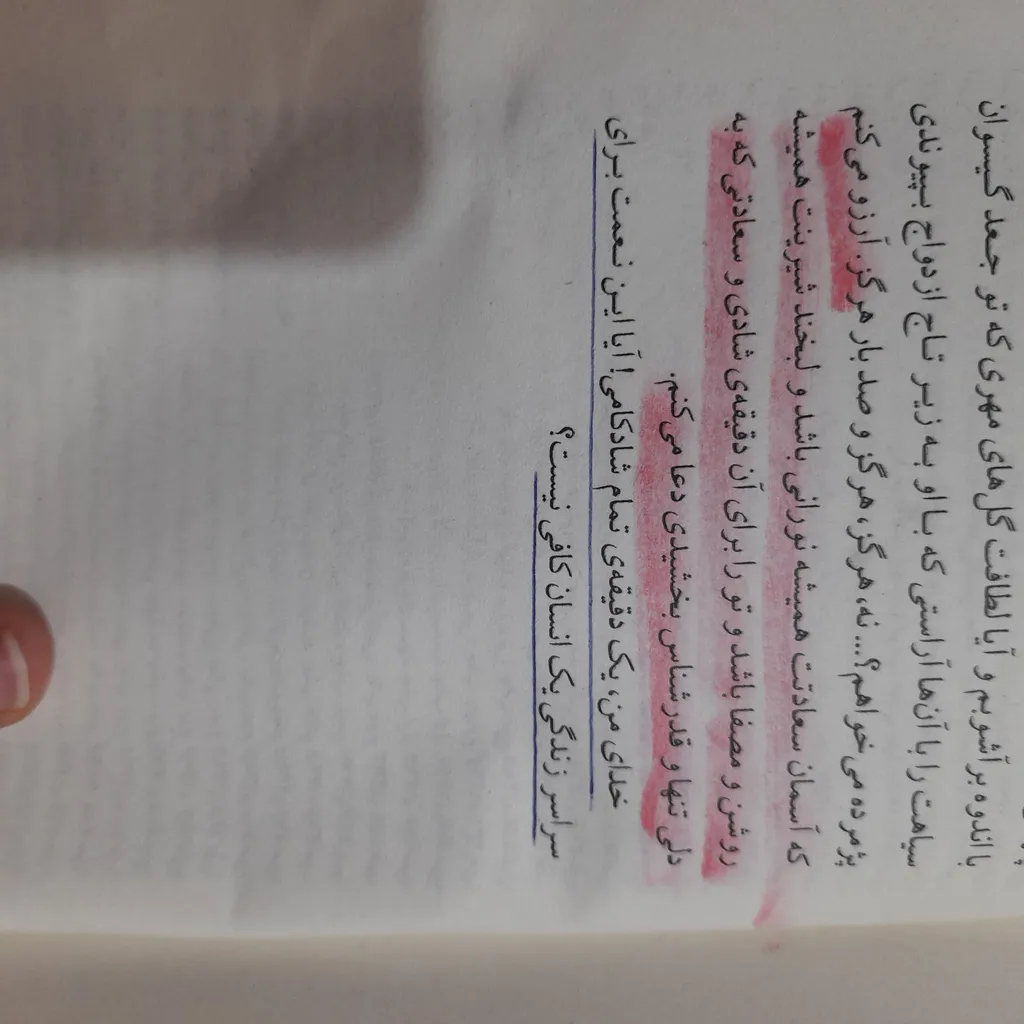 با اندوه برآشوبم و آیا لطافت گل‌های مهری که تو جعد گیسوان
سیاهت را با آن‌ها آراستی که با او به زیر تاج ازدواج بپیوندی
پژمرده می‌خواهم؟... نه، هرگز، هرگز و صد بار هرگز. آرزو می‌کنم
که آسمان سعادتت همیشه نورانی باشد و لبخند شیرینت همیشه
روشن و مصفا باشد و تو را برای آن دقیقه‌ی شادی و سعادتی که به
دلی تنها و قدرشناس بخشیدی دعا می‌کنم.
خدای من، یک دقیقه‌ی تمام شادکامی! آیا این نعمت برای
سراسر زندگی یک انسان کافی نیست؟